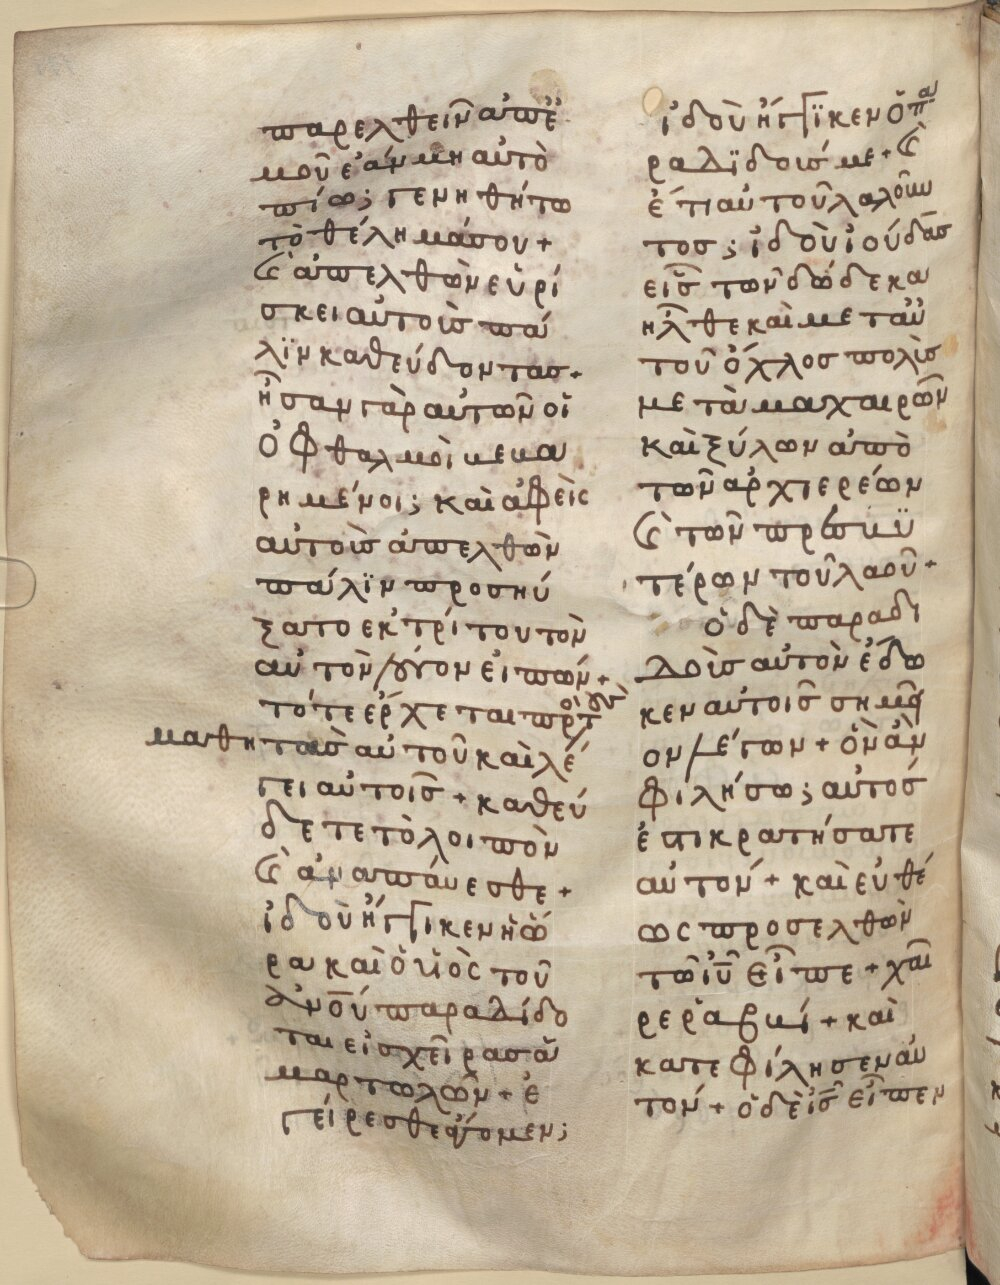 παρελθεῖν ἀπ᾽ ἐ
μοῦ ἐὰν μὴ αὐτὸ
πίω; γενηθήτω
τὸ θέλημάσου +
Καὶ ἀπελθὼν εὑρί
σκει αὐτοὺσ πά
λϊν καθεύδοντασ +
ἦσαν γὰρ αὐτῶν οἱ
ὀφθαλμοὶ βεβα
ρημένοι; καὶ ἀφεὶς
αὐτοὺσ ἀπελθὼν
πάλϊν προσηύ
ξατο εκ τρίτου τὸν
αὐτὸν λόγον εἰπών +
τότε ἔρχεται πρὸς τοὺσ
μαθητασ αὐτοῦ καὶ λέ
γει αὐτοῖσ + καθεύ
δετε τὸ λοιπὸν
Καὶ ἀναπάυεσθε +
ἰδοὺ ἤγγικεν ἡ ὥ
ρα καὶ ὁ υἱὸς τοῦ
ἀνου παραδίδο
ται εἰσ χεῖρασ ἁ
μαρτωλῶν + ἐ
γείρεσθε ἄγομεν;
ἰδοὺ ἤγγϊκεν ὁ πα
ραδϊδούσ με + Καὶ
ἔτι αὐτοῦ λαλοῦν
τοσ; ἰδοὺ ἰούδασ
εἷσ τῶν δώδεκα
ἦλθε καὶ μετ αὐ
τοῦ ὄχλοσ πολὺσ
μετὰ μαχαιρῶν
καὶ ξύλων ἀπὸ
τῶν ἀρχιερέων
Καὶ τῶν πρεσβϋ
τέρων τοῦ λαοῦ +
ὁ δὲ παραδι
δοὺσ αὐτὸν ἔδω
κεν αὐτοισ σημεῖ
ον λέγων + ὃν ἂν
φιλήσω; αὐτοσ
ἐστι κρατήσατε
αὐτον + καὶ ευθέ
ως προσελθὼν
τῶ ιῦ εἶπε + χαῖ
ρε ῥαββί + καὶ
κατεφίλησεν αὐ
τον + ὁ δὲ ισ εἶπεν